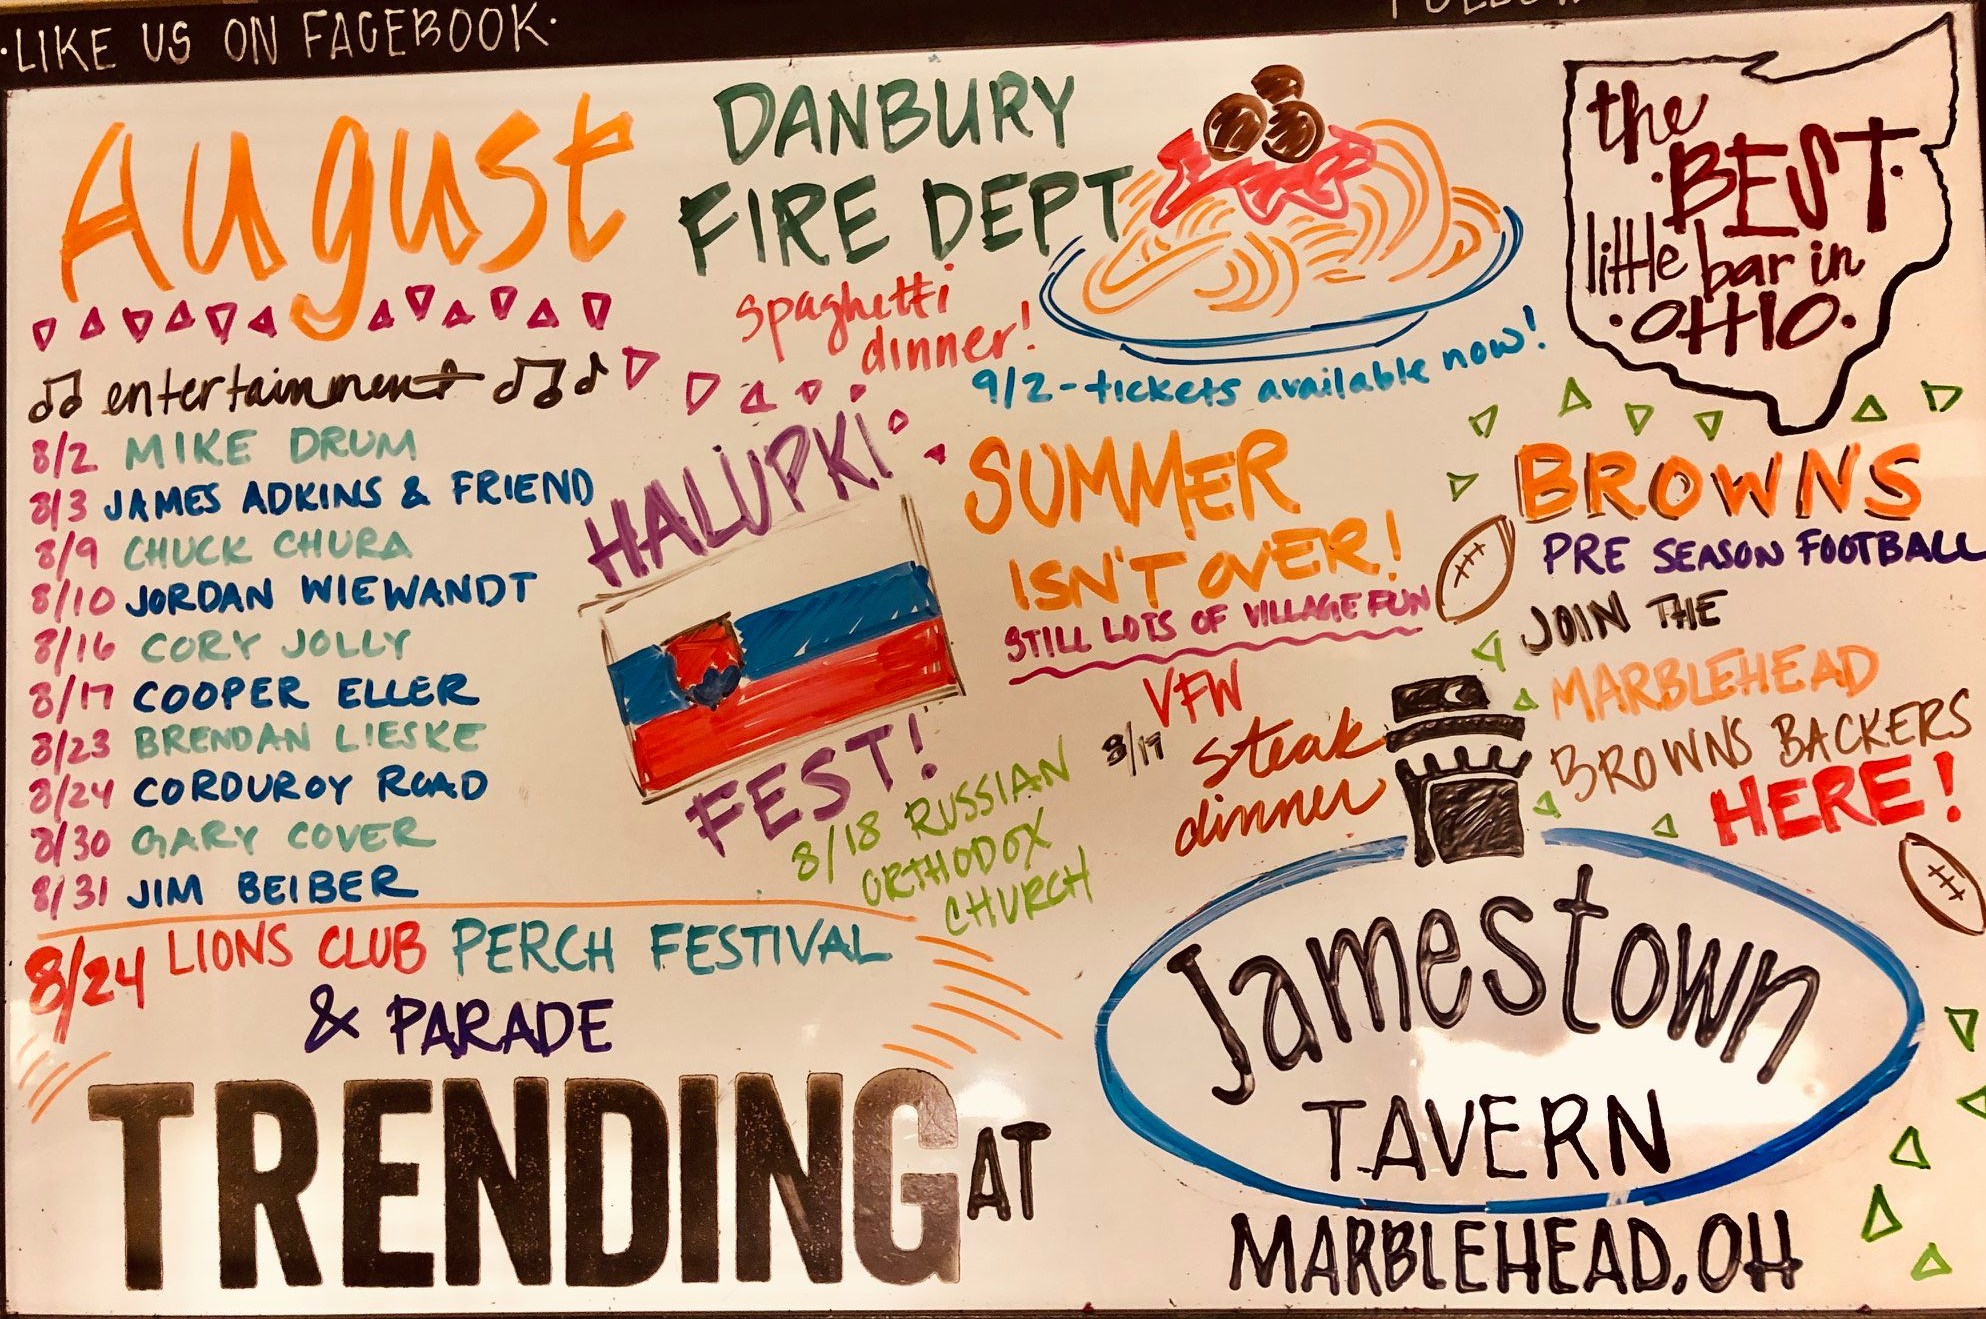 ·LIKE US ON FACEBOOK·
August
entertainment
8/2 MIKE DRUM
8/3 JAMES ADKINS & FRIEND
8/9 CHUCK CHURA
8/10 JORDAN WIEWANDT
8/16 CORY JOLLY
8/17 COOPER ELLER
8/23 BRENDAN LIESKE
8/24 CORDUROY ROAD
8/30 GARY COVER
8/31 JIM BEIBER
8/24 LIONS CLUB PERCH FESTIVAL
& PARADE
TRENDING AT
DANBURY
FIRE DEPT
spaghetti
dinner!
9/2-tickets available now!
HALUPKI
FEST!
8/18 RUSSIAN
ORTHODOX
CHURCH
SUMMER
ISN'T OVER!
STILL LOTS OF VILLAGE FUN
VFW
8/19 steak
dinner
the
·BEST·
little bar in
·OHIO·
BROWNS
PRE SEASON FOOTBALL
JOIN THE
MARBLEHEAD
BROWNS BACKERS
HERE!
Jamestown
TAVERN
MARBLEHEAD, OH